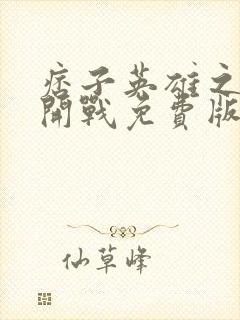 痞子英雄之
開戰免費版
仙草峰